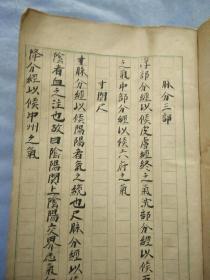 脉分三部
浮部分經以候皮膚經終之氣沉部分經以候五
之氣中部分經以候六府之氣
寸関尺
寸脉分經以候陽陽者氣之统也尺脉分經以候
陰者血之注也故曰陰陽関上陰陽交界应氣
降分經以候中州之氣